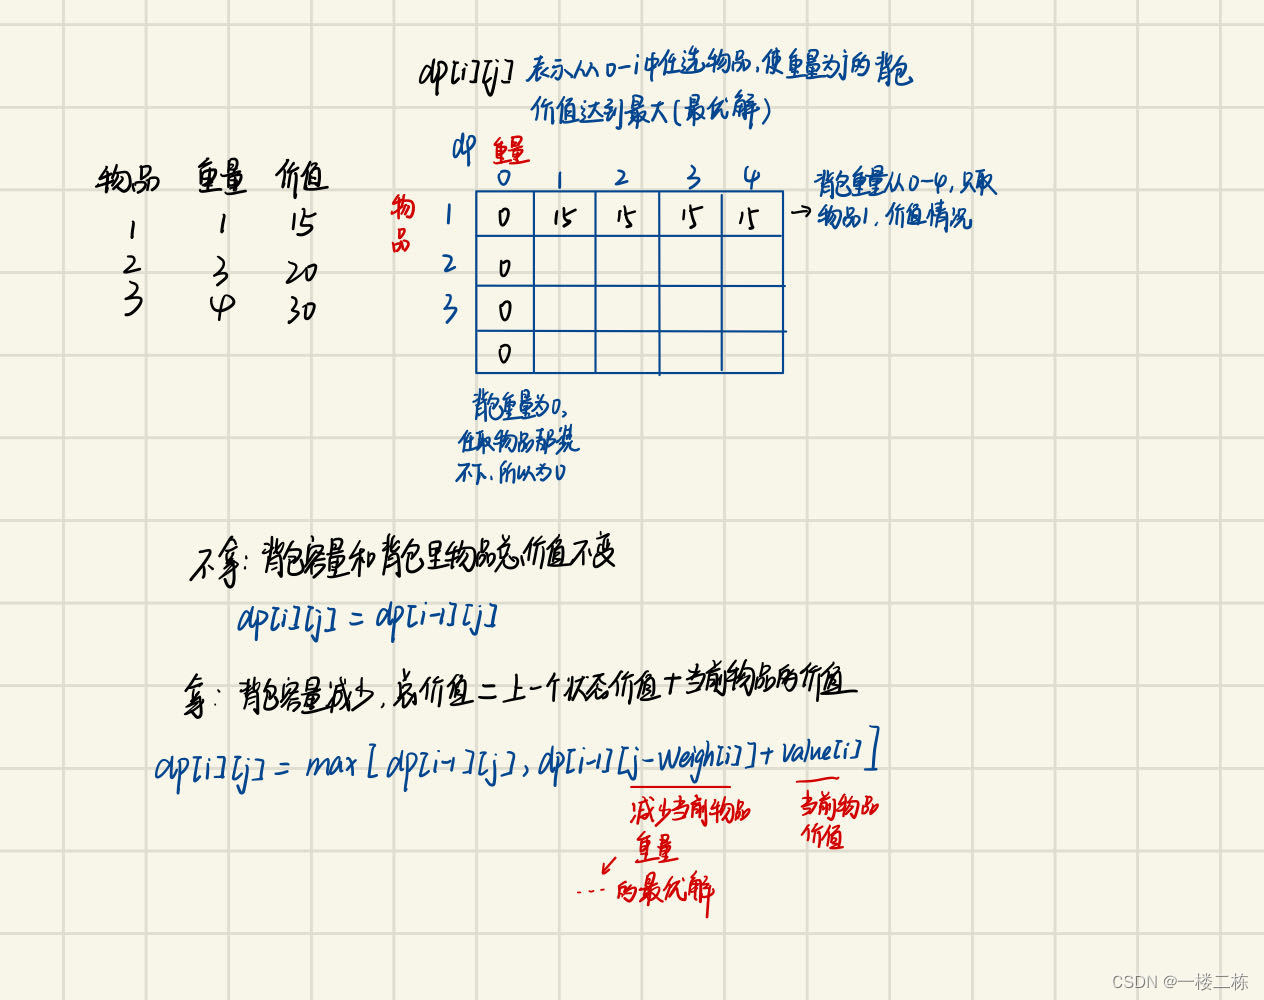 dp[i][j] 表示从0-i中任选物品,使重量为j的背包
价值达到最大(最优解)
dp 重量
物品 重量 价值
1 1 15
2 3 20
3 4 30
物品
0 1 2 3 4
1 0 15 15 15 15
2 0
3 0
0
→ 背包重量从0-4,只取
物品1,价值情况
背包重量为0,
任取物品都装
不下,所以为0
不拿:背包容量和背包里物品总价值不变
dp[i][j] = dp[i-1][j]
拿:背包容量减少,总价值=上一个状态价值+当前物品的价值
dp[i][j] = max[dp[i-1][j], dp[i-1][j-weigh[i]]+value[i]]
减少当前物品
重量
... 的最优解
当前物品
价值
CSDN @一楼二栋